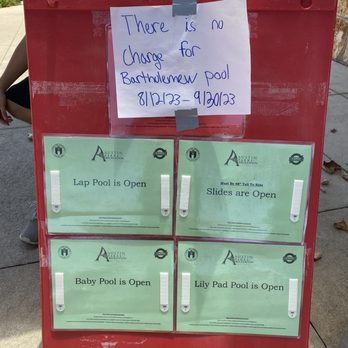 There is no
Charge for
Bartholemew pool
8/12/23 - 9/20/23
AUSTIN
Lap Pool is Open
AUSTIN
Must Be 48" Tall To Ride
Slides are Open
AUSTIN
Baby Pool is Open
AUSTIN
Lily Pad Pool is Open